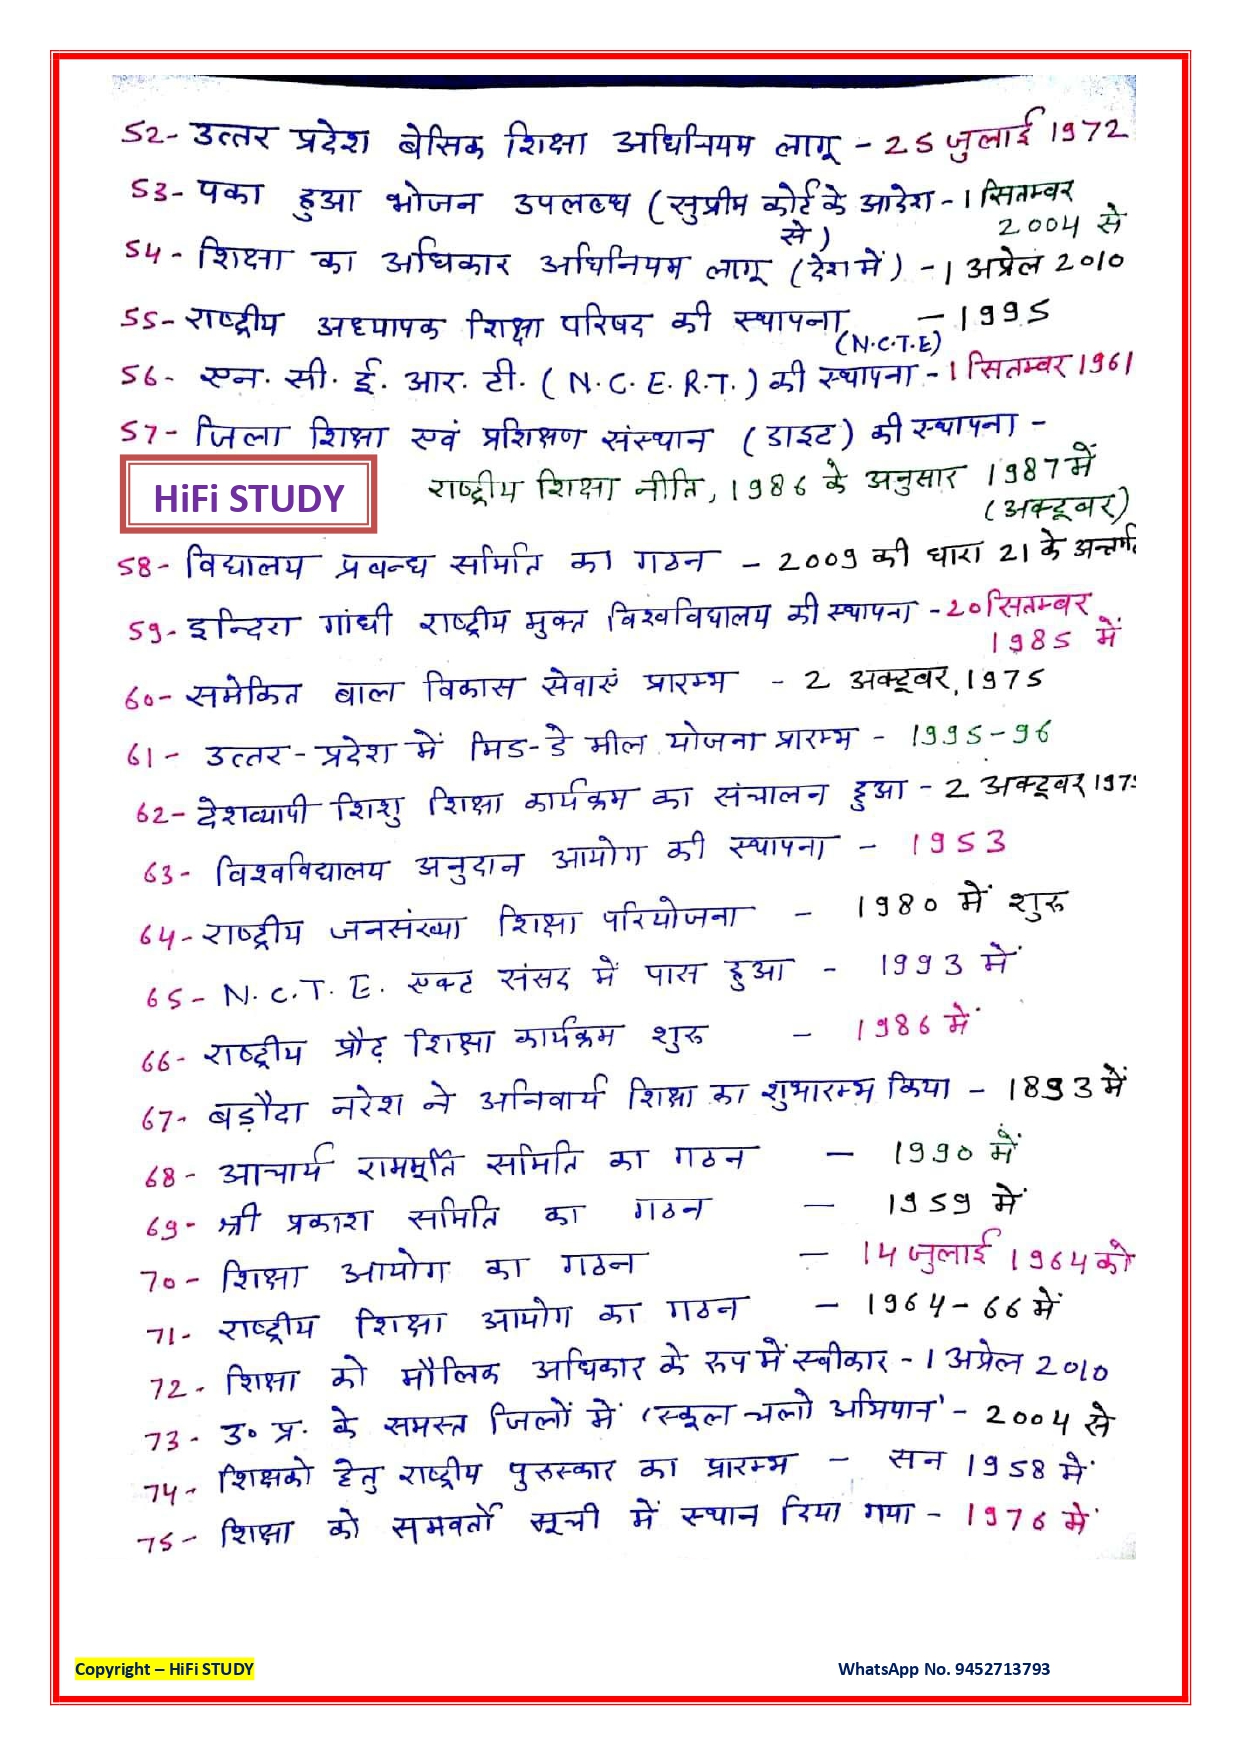 52- उत्तर प्रदेश बेसिक शिक्षा अधिनियम लागू - 25 जुलाई 1972
53- पका हुआ भोजन उपलब्ध (सुप्रीम कोर्ट के आदेश - 1 सितम्बर
से) 2004 से
54- शिक्षा का अधिकार अधिनियम लागू (देश में) - 1 अप्रेल 2010
55- राष्ट्रीय अध्यापक शिक्षा परिषद की स्थापना - 1995
(N.C.T.E)
56- एन. सी. ई. आर. टी. (N.C.E.R.T.) की स्थापना - 1 सितम्बर 1961
57- जिला शिक्षा एवं प्रशिक्षण संस्थान (डाइट) की स्थापना -
HiFi STUDY राष्ट्रीय शिक्षा नीति, 1986 के अनुसार 1987 में
(अक्टूबर)
58- विद्यालय प्रबन्ध समिति का गठन - 2009 की धारा 21 के अन्तर्गत
59- इन्दिरा गांधी राष्ट्रीय मुक्त विश्वविद्यालय की स्थापना - 20 सितम्बर
1985 में
60- समेकित बाल विकास सेवाएं प्रारम्भ - 2 अक्टूबर, 1975
61- उत्तर-प्रदेश में मिड-डे मील योजना प्रारम्भ - 1995-96
62- देशव्यापी शिशु शिक्षा कार्यक्रम का संचालन हुआ - 2 अक्टूबर 1975
63- विश्वविद्यालय अनुदान आयोग की स्थापना - 1953
64- राष्ट्रीय जनसंख्या शिक्षा परियोजना - 1980 में शुरु
65- N.C.T.E. एक्ट संसद में पास हुआ - 1993 में
66- राष्ट्रीय प्रौढ़ शिक्षा कार्यक्रम शुरु - 1986 में
67- बड़ौदा नरेश ने अनिवार्य शिक्षा का शुभारम्भ किया - 1893 में
68- आचार्य राममूर्ति समिति का गठन - 1990 में
69- श्री प्रकाश समिति का गठन - 1959 में
70- शिक्षा आयोग का गठन - 14 जुलाई 1964 को
71- राष्ट्रीय शिक्षा आयोग का गठन - 1964-66 में
72- शिक्षा को मौलिक अधिकार के रूप में स्वीकार - 1 अप्रेल 2010
73- उ० प्र. के समस्त जिलों में 'स्कूल चलो अभियान' - 2004 से
74- शिक्षको हेतु राष्ट्रीय पुरुस्कार का प्रारम्भ - सन 1958 में
75- शिक्षा को समवर्ती सूची में स्थान दिया गया - 1976 में
Copyright – HiFi STUDY WhatsApp No. 9452713793